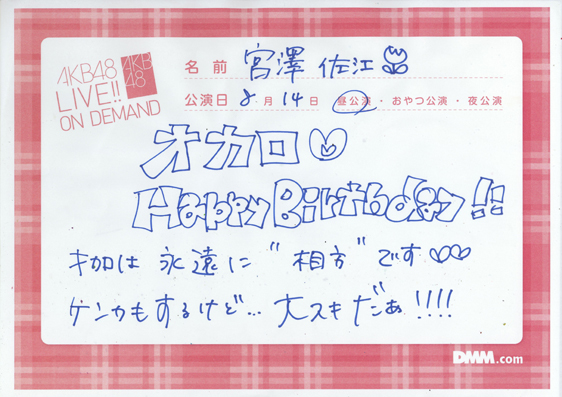 AKB48
LIVE!!
ON DEMAND
AKB
48
名前 宮澤 佐江
公演日 8月14日 昼公演・おやつ公演・夜公演
オカロ♡
Happy Birthday!!
オカロは 永遠に "相方" です♡♡
ケンカもするけど… 大スキだぁ!!!!
DMM.com